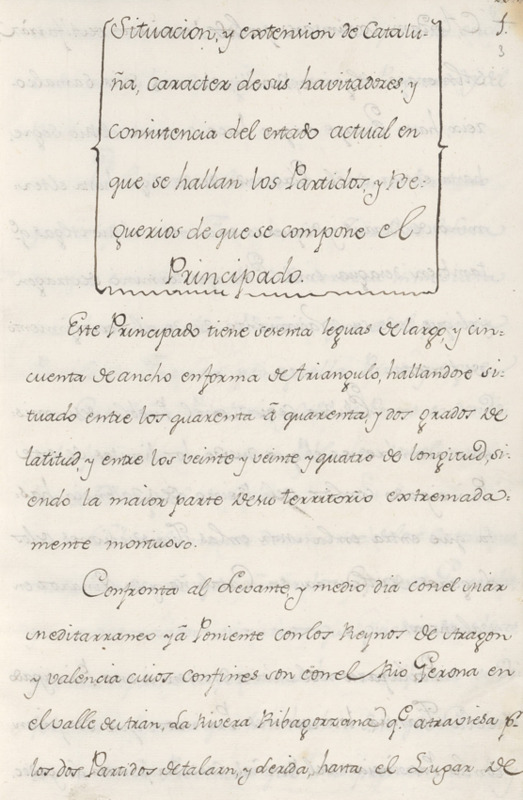 1.
3
Situacion, y extension de Catalu=
ña, caracter de sus havitadores, y
consistencia del estado actual en
que se hallan los Partidos, y Be=
guerios de que se compone el
Principado.
Este Principado tiene sesenta leguas de largo, y cin=
cuenta de ancho en forma de triangulo, hallandose si=
tuado entre los quarenta â quarenta, y dos grados de
latitud, y entre los veinte y veinte y quatro de longitud, si=
endo la maior parte de su territorio extremada=
mente montuoso.
Confronta al Levante, y medio dia con el mar
Meditarraneo y â Poniente con los Reynos de Aragon
y valencia cuios confines son con el Rio Gerona en
el valle de Aran, La Rivera Ribagorzana qe. atraviesa pr.
los dos Partidos de talarn, y Lerida, hasta el Lugar de